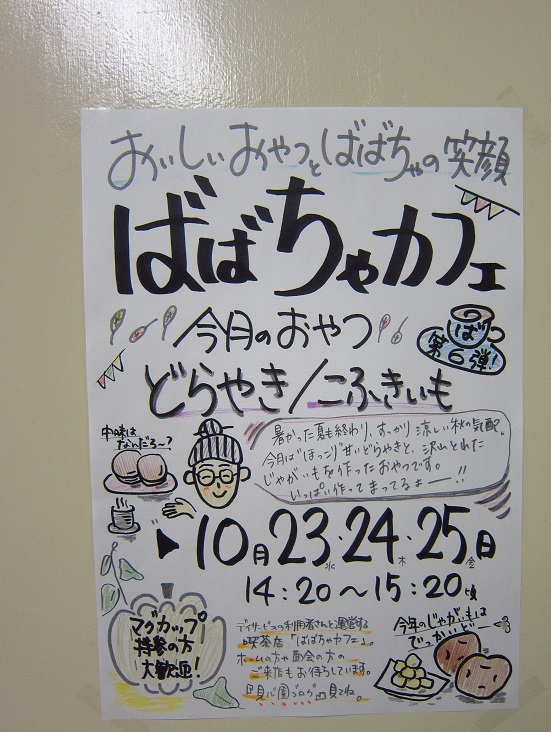 おいしいおやつとばばちゃの笑顔
ばばちゃカフェ
今月のおやつ
ば
第6弾!
どらやき/こふきいも
中味は
なんだろ〜?
暑かった夏も終わり、すっかり涼しい秋の気配。
今月は"ほっこり"甘いどらやきと、沢山とれた
じゃがいもを作ったおやつです。
いっぱい作ってまってるよー!!
10月23水・24木・25金日
14:20〜15:20頃
マグカップ
持参の方
大歓迎!
デイサービスの利用者さんと運営する
喫茶店「ばばちゃカフェ」。
ホームの方や面会の方の
ご来店もお待ちしています。
ブログ
見てね。
今年のじゃがいもは
でっかいどー